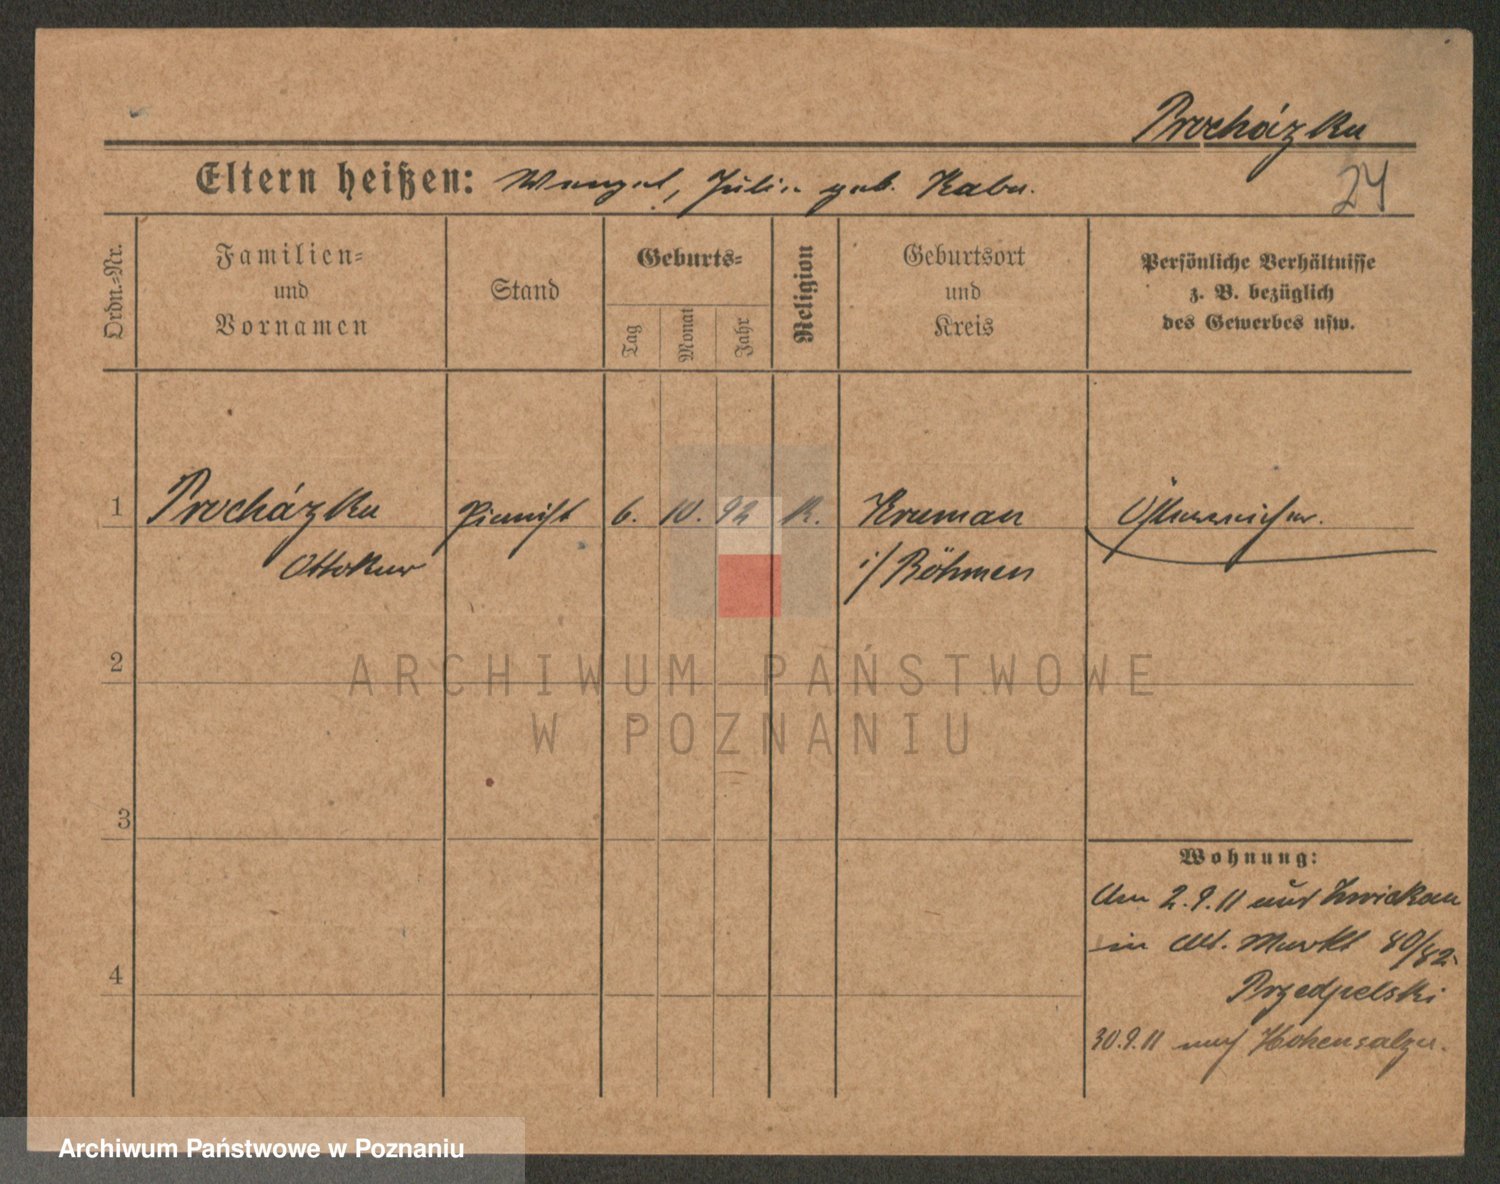 Procházka
24
Eltern heißen: Wenzel, Julie geb. Kaba.
Ordn.-Nr.
Familien-
und
Vornamen
Stand
Geburts-
Tag
Monat
Jahr
Religion
Geburtsort
und
Kreis
Persönliche Verhältnisse
z. B. bezüglich
des Gewerbes usw.
1 Procházka Pianist 6. 10. 92 K. Kruman Österreicher.
Ottokar i/Böhmen
2
ARCHIWUM PAŃSTWOWE
W POZNANIU
3
Wohnung:
Am 2.9.11 aus Zwickau
in Alt. Markt 80/82
4
Przedpelski
30.9.11 nach Hohensalza.
Archiwum Państwowe w Poznaniu